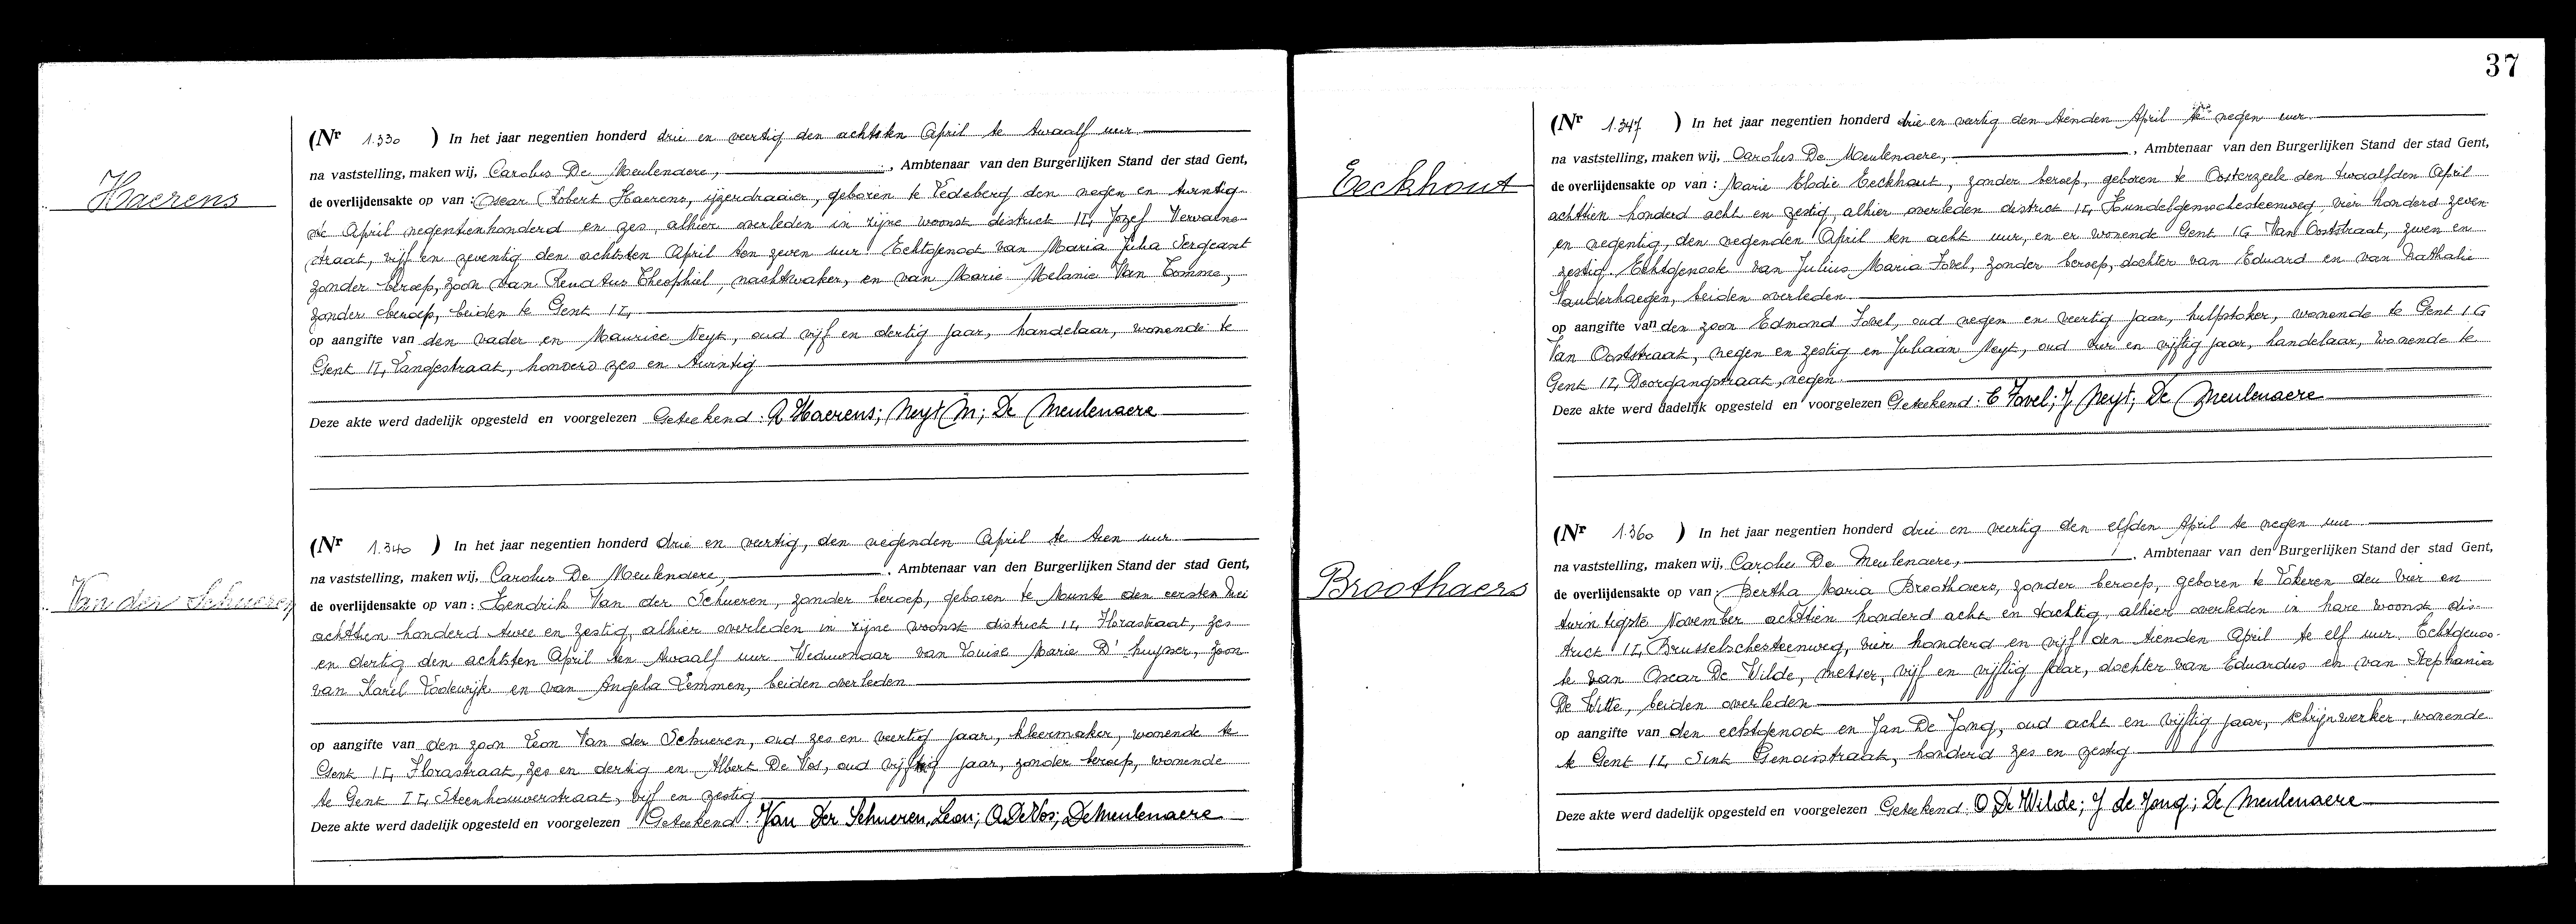 Haerens
(Nr 1.330 ) In het jaar negentien honderd drie en veertig den achtsten April te twaalf uur
na vaststelling, maken wij, Carolus De Meulenaere, , Ambtenaar van den Burgerlijken Stand der stad Gent,
de overlijdensakte op van : Oscar Robert Haerens, ijzerdraaier, geboren te Ledeberg den negen en twintig-
ste April negentienhonderd en zes, alhier overleden in zijne woonst district II, Jozef Vervaene-
straat, vijf en zeventig den achtsten April ten zeven uur Echtgenoot van Maria Julia Sergeant
zonder beroep, zoon van Renatus Theophiel, nachtwaker, en van Marie Melanie Van Tomme,
zonder beroep, beiden te Gent II,
op aangifte van den vader en Maurice Neyt, oud vijf en dertig jaar, handelaar, wonende te
Gent II, Langestraat, honderd zes en twintig
Deze akte werd dadelijk opgesteld en voorgelezen Geteekend: R Haerens; Neyt M; De Meulenaere
Van der Schueren
(Nr 1.340 ) In het jaar negentien honderd drie en veertig, den negenden April te tien uur
na vaststelling, maken wij, Carolus De Meulenaere, , Ambtenaar van den Burgerlijken Stand der stad Gent,
de overlijdensakte op van : Hendrik Van der Schueren, zonder beroep, geboren te Munte den eersten Mei
achttien honderd twee en zestig, alhier overleden in zijne woonst district II, Florastraat, zes
en dertig den achtsten April ten twaalf uur Weduwnaar van Louise Marie D'huyser, zoon
van Karel Lodewijk en van Angela Lemmen, beiden overleden
op aangifte van den zoon Leon Van der Schueren, oud zes en veertig jaar, kleermaker, wonende te
Gent II, Florastraat, zes en dertig en Albert De Vos, oud vijftig jaar, zonder beroep, wonende
te Gent II, Steenhouwerstraat, vijf en zestig
Deze akte werd dadelijk opgesteld en voorgelezen Geteekend: Van Der Schueren, Leon; A De Vos; De Meulenaere
37
Eeckhout
(Nr 1.347 ) In het jaar negentien honderd drie en veertig den tienden April te negen uur
na vaststelling, maken wij, Carolus De Meulenaere, , Ambtenaar van den Burgerlijken Stand der stad Gent,
de overlijdensakte op van : Marie Elodie Eeckhout, zonder beroep, geboren te Oosterzeele den twaalfden April
achttien honderd acht en zestig, alhier overleden district II, Hundelgemschesteenweg, vier honderd zeven
en negentig, den negenden April ten acht uur, en er wonende Gent IG Van Ooststraat, zeven en
zestig. Echtgenoote van Julius Maria Fovel, zonder beroep, dochter van Eduard en van Nathalie
Vanderhaegen, beiden overleden
op aangifte van den zoon Edmond Fovel, oud negen en veertig jaar, hulpstoker, wonende te Gent IG
Van Ooststraat, negen en zestig en Juliaan Neyt, oud vier en vijftig jaar, handelaar, wonende te
Gent II, Doorgangstraat, negen
Deze akte werd dadelijk opgesteld en voorgelezen Geteekend: E Fovel; J Neyt; De Meulenaere
Broothaers
(Nr 1.360 ) In het jaar negentien honderd drie en veertig den elfden April te negen uur
na vaststelling, maken wij, Carolus De Meulenaere, , Ambtenaar van den Burgerlijken Stand der stad Gent,
de overlijdensakte op van : Bertha Maria Broothaers, zonder beroep, geboren te Lokeren den vier en
twintigste November achttien honderd acht en tachtig, alhier overleden in hare woonst dis-
trict II, Brusselschesteenweg, vier honderd en vijf den tienden April te elf uur. Echtgenoo-
te van Oscar De Wilde, metser, vijf en vijftig jaar, dochter van Eduardus en van Stephania
De Witte, beiden overleden
op aangifte van den echtgenoot en Jan De Jong, oud acht en vijftig jaar, schrijnwerker, wonende
te Gent II, Sint Genoisstraat, honderd zes en zestig
Deze akte werd dadelijk opgesteld en voorgelezen Geteekend: O De Wilde; J de Jong; De Meulenaere